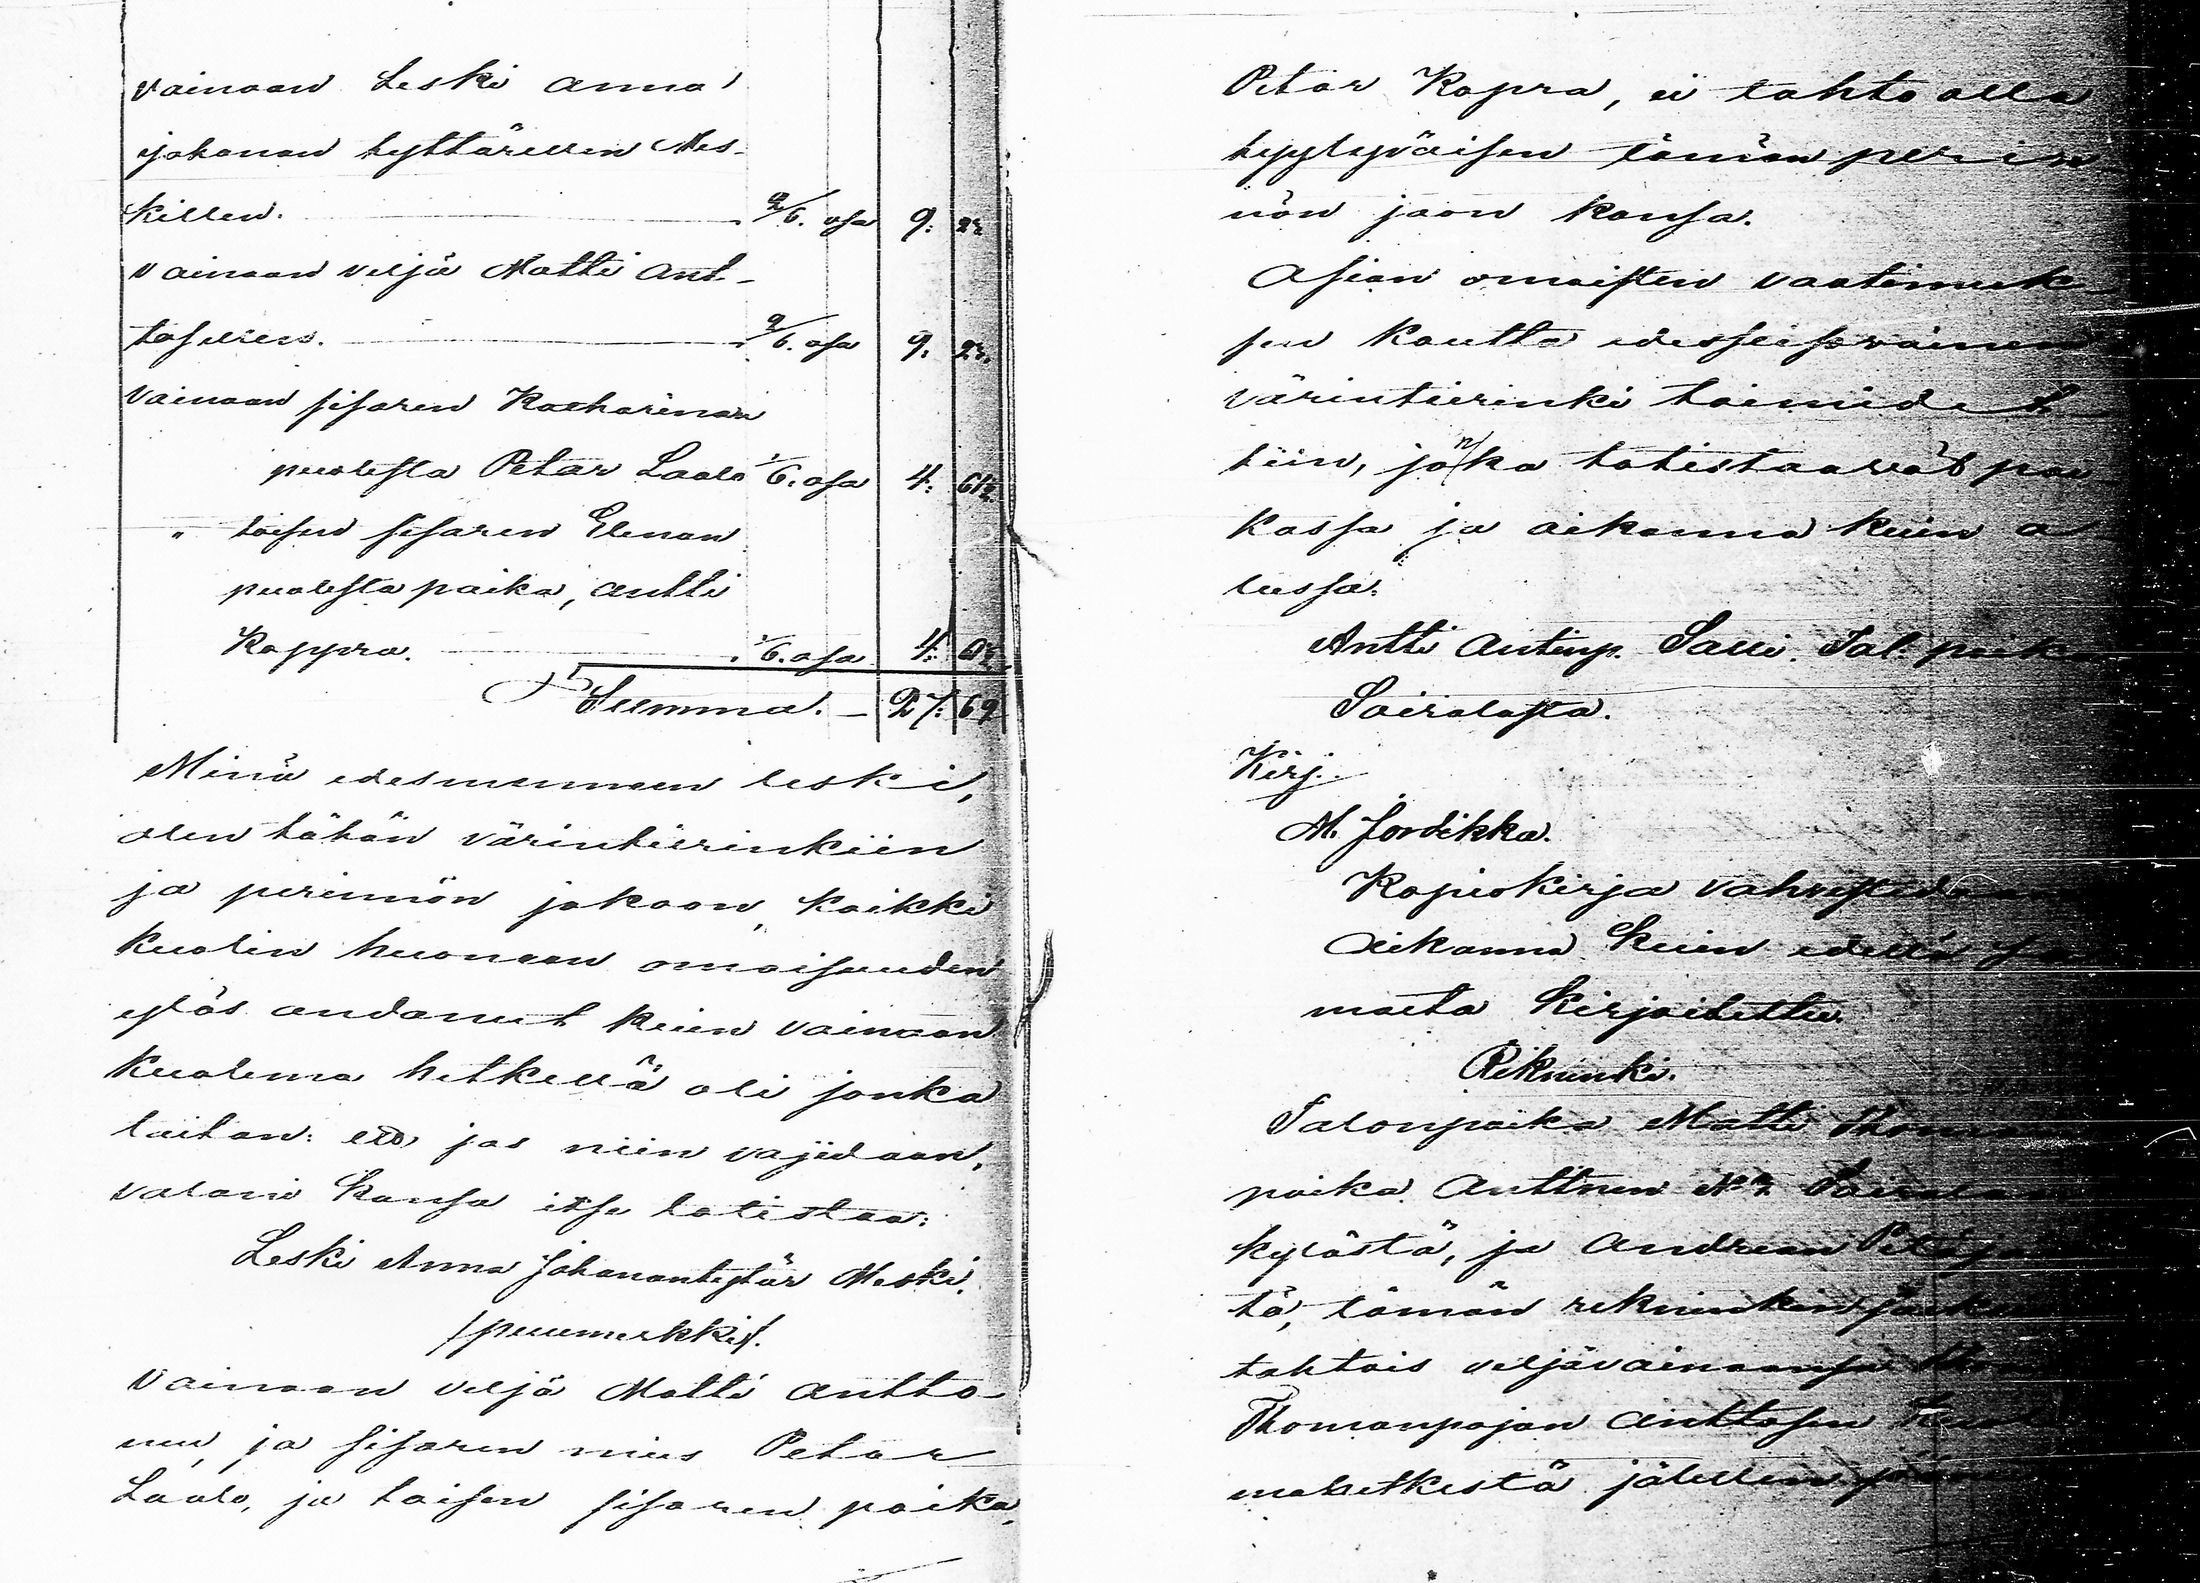 vainaan Leski Anna
johanan tyttärellen Mes-
killen. 2/6. osa 9: 23
vainaan veljä Matti Ant-
tosellen. 2/6. osa 9: 23.
Vainaan sisaren Katharinan
puolesta Petar Laalo 1/6. osa 4: 61½
" toisen sisaren Elenan
puolesta paika, Antti
Kappra. 1/6. osa 4:
Summa. 27: 69
Minä edesmenneen leski,
olen tähän värinkierinkiin
ja perinnön jakoon, kaikki
kuolin huoneen omaisuuden
ylös andanut kuin vainaan
kuolema hetkellä oli jonka
taitan: jos niin vajidaan,
valani kansa itse totistaa:
Leski Anna Johanantytär Meski.
/puumerkki/.
Vainaan veljä Matti Antto-
nen, ja sisaren mies Petar
Laalo, ja toisen sisaren poika,
Petar Kapra, ei tahto olla
tyytyväisen tämän perin
nön jaon kansa.
Asian omaisten vaatimuk-
sen kautta edesseisoväinen
värintierinki toimidet
tiin, jonka totistaavat pai
kassa ja aikanna kuin a
lussa.
Antti Antinp. Salli. Tal: poika
Sairalasta.
Kirj.
M. Jordikka.
Kopiokirja vahvistedaan
Aikanna kuin edellä sa
masta kirjoitettu.
Rikninki.
Talonpoika Matti
poika Anttonen
kylästä, ja Andrean
tä, tämän rekninkin
tahtois veljävainaansa
Thomanpojan Anttosen
mahetkestä jälellen